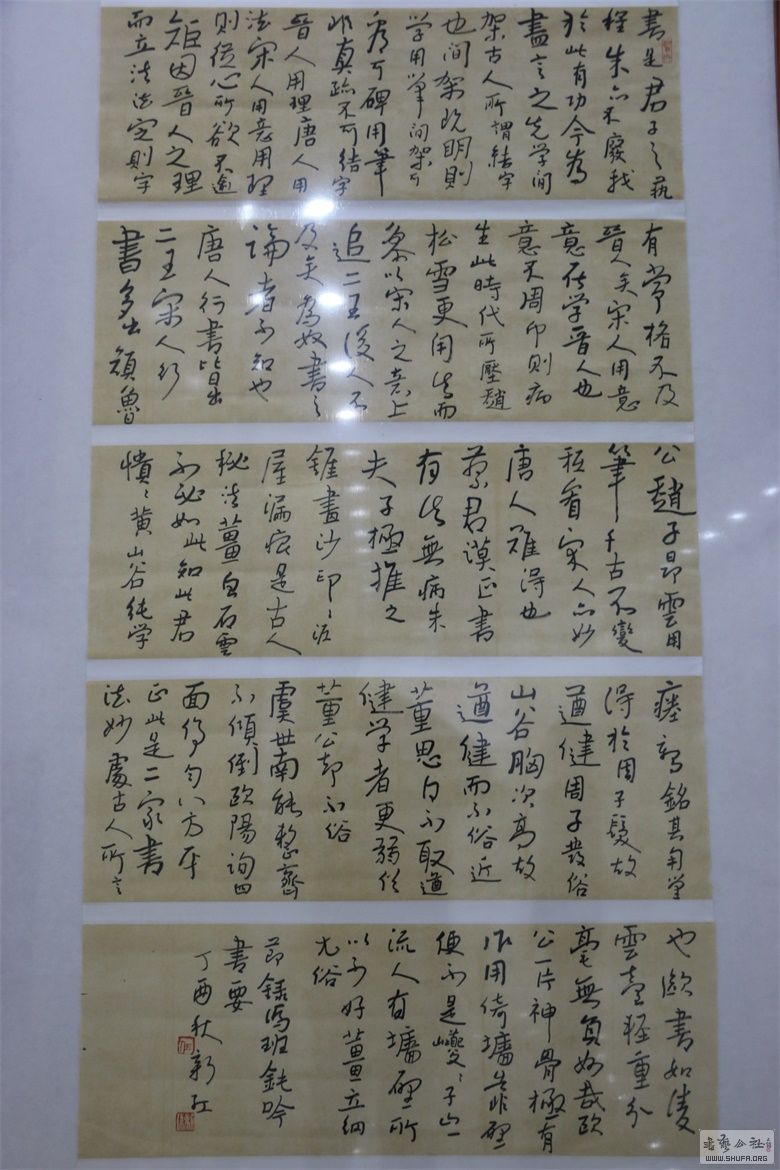 書是君子之藝
程朱亦不廢我
於此有功今為
盡言之先学間
架古人所謂結字
也間架既明則
学用筆間架可
看石碑用筆
非真跡不可結字
晋人用理唐人用
法宋人用意用理
則從心所欲不逾
矩因晋人之理
而立法法定則字
有常格不及
晋人矣宋人用意
意在学晋人也
意不周帀則病
生此時代所壓趙
松雪更用法而
參以宋人之意上
追二王後人不
及矣為奴書之
論者不知也
唐人行書皆出
二王宋人行
書多出顔魯
公趙子昂雲用
筆千古不變
秖看宋人亦妙
唐人難得也
蔡君謨正書
有法無病朱
夫子極推之
錐畫沙印〻泥
屋漏痕是古人
秘法薑白石雲
不必如此知此君
憒〻黄山谷純学
瘞鶴銘其用筆
得於周子髮故
遒健周子發俗
山谷胸次高故
遒健而不俗近
董思白不取遒
健学者更弱俗
董公却不俗
虞世南能整齊
不傾倒歐陽詢四
面停匀八方平
正此是二家書
法妙處古人所言
也歐書如淩
雲臺輕重分
毫無負妙哉歐
公一片神骨極有
作用倚墻靠壁
便不是巙〻子山一
流人有墻壁所
以不好薑立綱
尤俗
節録馮班鈍吟
書要
丁酉秋新紅
書藝公社
WWW.SHUFA.ORG